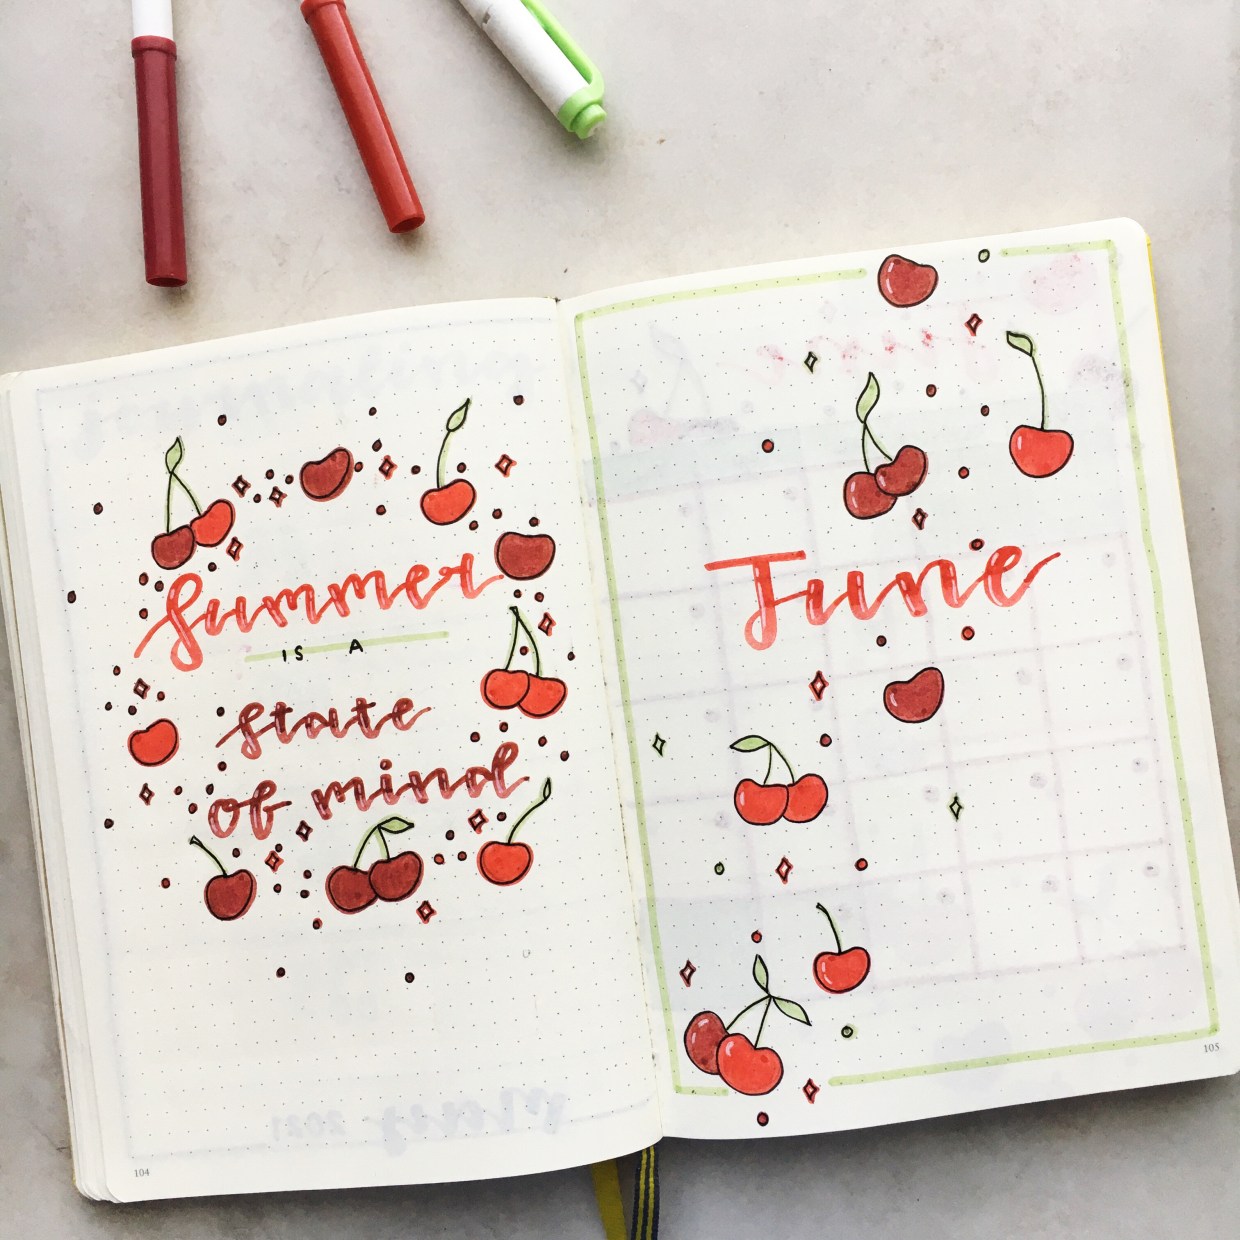 Summer
IS A
state
of mind
104
June
105